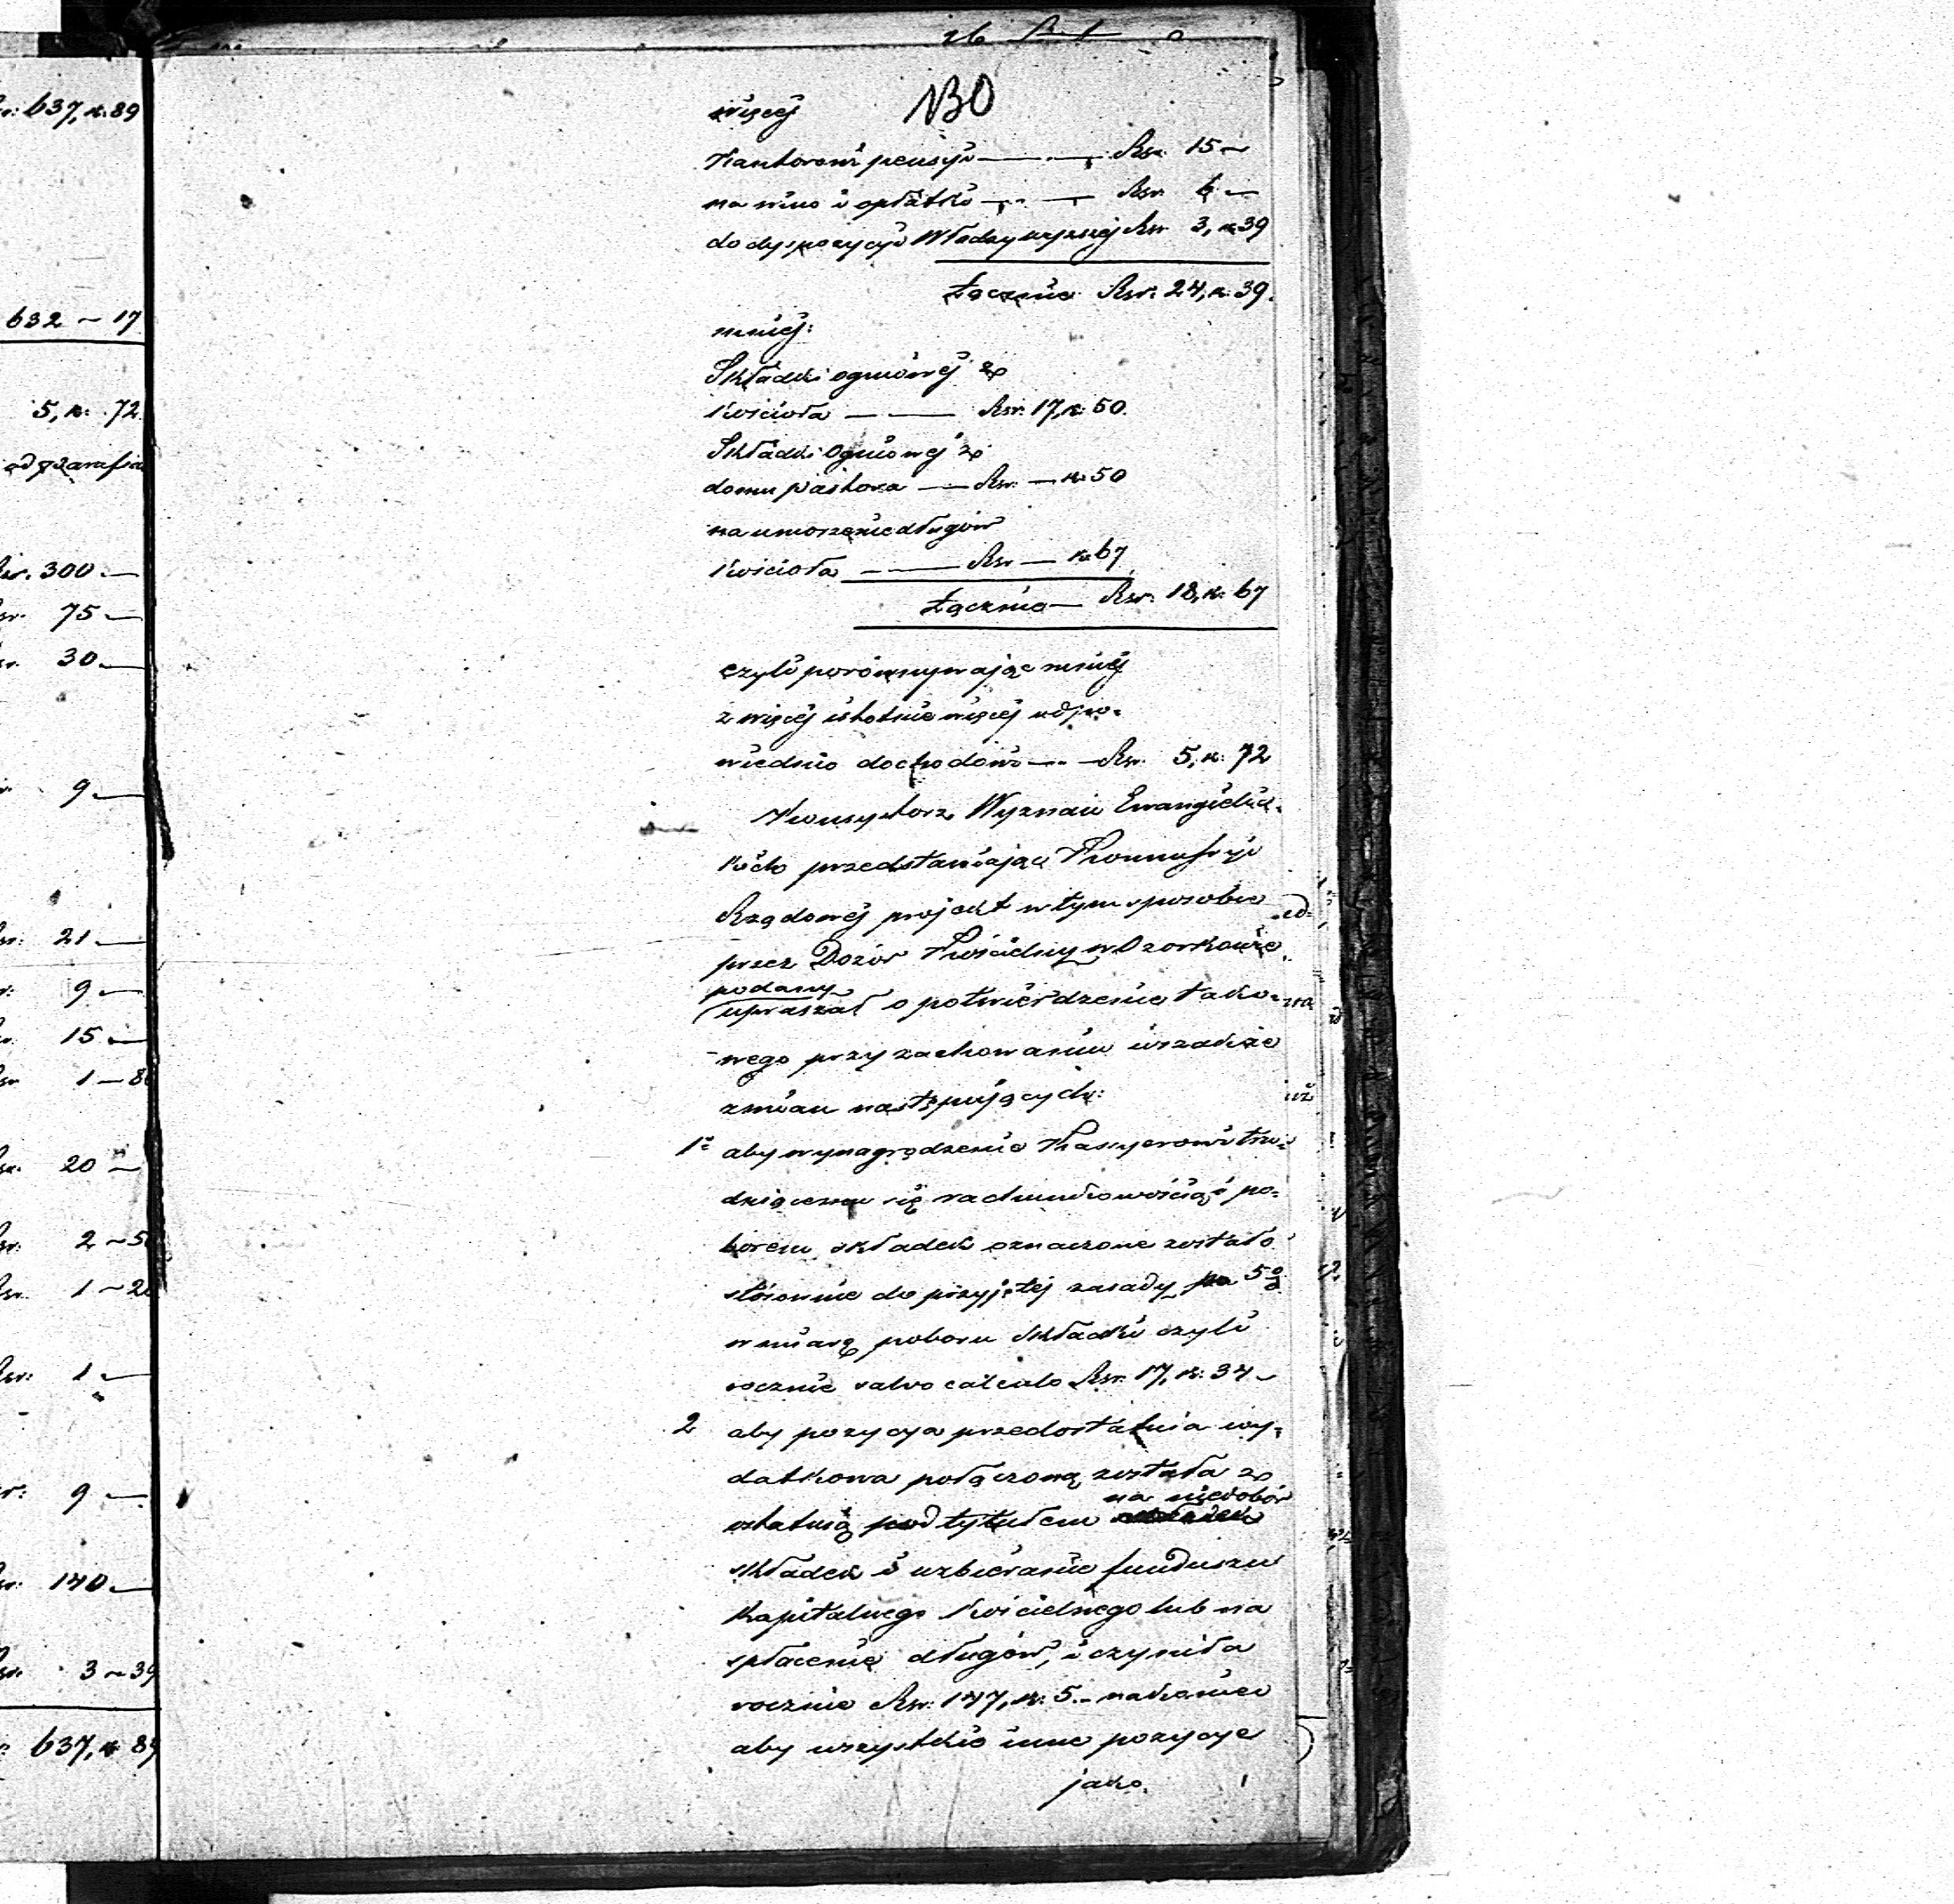 r: 637, k: 89
632 ~ 17
5, k: 72.
od parafia
Rsr. 300 —
Rsr. 75 —
Rsr. 30 —
9 —
Rsr: 21 —
9 —
15 —
1 — 8
20 —
2 ~ 5
1 ~ 2
Rsr: 1 —
9 —
140 —
3 ~ 39
637, k 89
130
więcej
Kantorowi pensyi — Rsr. 15 ~
na wino i opłatki — Rsr. 6 —
do dyspozycyi Władzy wyższej Rsr 3, k 39
Łącznie Rsr: 24, k: 39.
mniej:
Składki ogniowej z
Kościoła — Rsr: 17, k: 50.
Składki Ogniowej z
domu Pastora — Rsr: — k: 50
na umorzenie długów
Kościoła — Rsr — k 67
Łącznie — Rsr. 18, k: 67
czyli porównywając mniej
z więcej istotnie więcej odpo-
wiednio dochodowi — Rsr: 5, k: 72
Konsystorz Wyznań Ewangielic-
kich przedstawiając Kommissyi
Rządowej projekt w tym sposobie
przez Dozór Kościelny w Ozorkowie
podany
upraszał o potwierdzenie tako-
wego przy zachowaniu wszakże
zmian następujących:
1° aby wynagrodzenie Kassyerowi tru-
dniącemu się rachunkowością i po-
borem składek oznaczone zostało
stosownie do przyjętej zasady po 5%
w miarę poboru składki czyli
rocznie salvo calculo Rsr. 17, k: 34 ~
2 aby pozycya przedostatnia wy-
datkowa połączoną została z
na niedobór
ostatnią pod tytułem
składek i uzbieranie funduszu
Kapitalnego Kościelnego lub na
spłacenie długów, i czyniła
rocznie Rsr: 147, k: 5. — nakoniec
aby wszystkie inne pozycye
jako